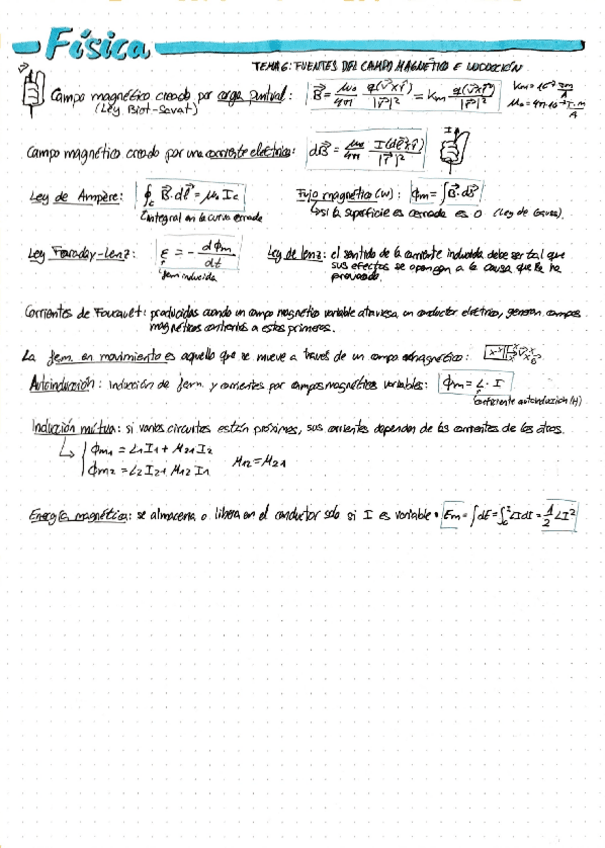 Física
TEMA 6: FUENTES DEL CAMPO MAGNÉTICO E INDUCCIÓN
Campo magnético creado por carga puntual: B⃗ = μ₀/4π q(v⃗×r̂)/|r⃗|² = Km q(v⃗×r̂)/|r⃗|² Km = 10⁻⁷ Tm/A
(Ley Biot-Savat) μ₀ = 4π·10⁻⁷ T·m/A
Campo magnético creado por una corriente eléctrica: dB⃗ = μ₀/4π I(dl⃗×r̂)/|r⃗|² I
Ley de Ampère: ∮c B⃗·dl⃗ = μ₀ Ic Flujo magnético (w): ϕm = ∫B⃗·dS⃗
integral en la curva cerrada si la superficie es cerrada es 0 (Ley de Gauss).
Ley Faraday-Lenz: ε = - dϕm/dt Ley de Lenz: el sentido de la corriente inducida debe ser tal que
fem inducida sus efectos se opongan a la causa que la ha
provocado.
Corrientes de Foucault: producidas cuando un campo magnético variable atraviesa un conductor eléctrico, generan campos
magnéticos contrarios a estos primeros.
La fem. en movimiento es aquello que se mueve a través de un campo magnético:
Autoinducción: Inducción de fem. y corrientes por campos magnéticos variables: ϕm = L·I
coeficiente autoinducción (H)
Inducción mútua: si varios circuitos están próximos, sus corrientes dependen de las corrientes de los otros.
ϕm1 = L1 I1 + M21 I2
ϕm2 = L2 I2 + M12 I1 M12 = M21
Energía magnética: se almacena o libera en el conductor solo si I es variable Em = ∫dE = ∫₀ᴵ LIdI = 1/2 LI²